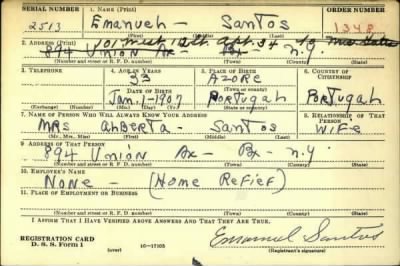 SERIAL NUMBER 1. NAME (Print) ORDER NUMBER
2513 Emanueh - Santos 1348
(First) (Middle) (Last)
2. ADDRESS (Print)
894 Union Av- Bx- N.Y
(Number and street or R. F. D. number) (Town) (County) (State)
3. TELEPHONE 4. AGE IN YEARS 5. PLACE OF BIRTH 6. COUNTRY OF CITIZENSHIP
33 AZORE
DATE OF BIRTH (Town or county)
Jan. 1-1907 Portugah Portugah
(Exchange) (Number) (Mo.) (Day) (Yr.) (State or country)
7. NAME OF PERSON WHO WILL ALWAYS KNOW YOUR ADDRESS 8. RELATIONSHIP OF THAT PERSON
MRS ahberta - Santos WIFE
(Mr., Mrs., Miss) (First) (Middle) (Last)
9. ADDRESS OF THAT PERSON
894 Union Av- Bx- n.y.
(Number and street or R. F. D. number) (Town) (County) (State)
10. EMPLOYER'S NAME
NONE - (Home Relief)
11. PLACE OF EMPLOYMENT OR BUSINESS
(Number and street or R. F. D. number) (Town) (County) (State)
I AFFIRM THAT I HAVE VERIFIED ABOVE ANSWERS AND THAT THEY ARE TRUE.
REGISTRATION CARD
D. S. S. Form 1 (over) 16-17105 Emanuel Santos
(Registrant's signature)